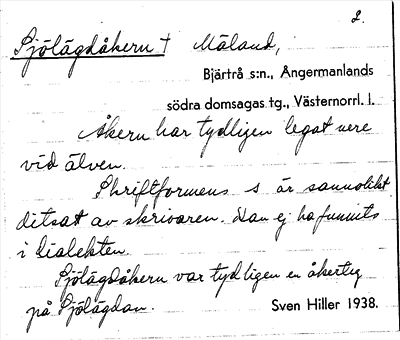 2.
Sjölägdåkern † Mäland,
Bjärtrå s:n., Ångermanlands
södra domsagas tg., Västernorrl. l.
Åkern har tydligen legat nere
vid älven.
Skriftformens s är sannolikt
ditsat av skrivaren. Kan ej ha funnits
i dialekten.
Sjölägdåkern var tydligen en åkerteg
på Sjölägdan.
Sven Hiller 1938.